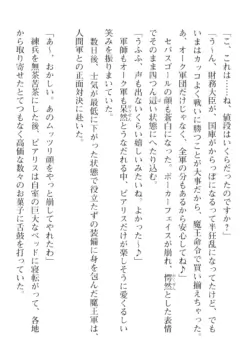 「こ、これは……ね、値段はいくらだったのですか？」
「うん。財務大臣が、国庫がからっぽになるって半狂乱になってたけど、
いまはカッコよく戦いに勝つことが大事だから、魔王命令で買い揃えちゃった。
あっ、オーク軍団だけじゃなくて、全軍の分もあるから安心してね♪」
セバスゴールの顔も蒼白になった。ポーカーフェイスが崩れ、愕然とした表情
でそのまま四つん這い状態にへたり込む。
「うふふ、声も出ないくらい嬉しいみたいだね。よかった～♪」
軍師もオーク軍も愕然とするなかひとり、ピアリスだけが楽しそうに愛くるしい
笑みを振りまいていた。
数日後、士気が最低に下がった状態で役立たずの装備に身を包んだ魔王軍は、
人間軍との正面対決に赴く。
「あ～、おかしい。あのムッツリ顔をやっと崩してやれたわ」
練兵を無茶苦茶にした後、ピアリスは自室の巨大なベッドに寝転がって、各地
から取り寄せたとてつもなく高価な数々のお菓子に舌鼓を打っていた。